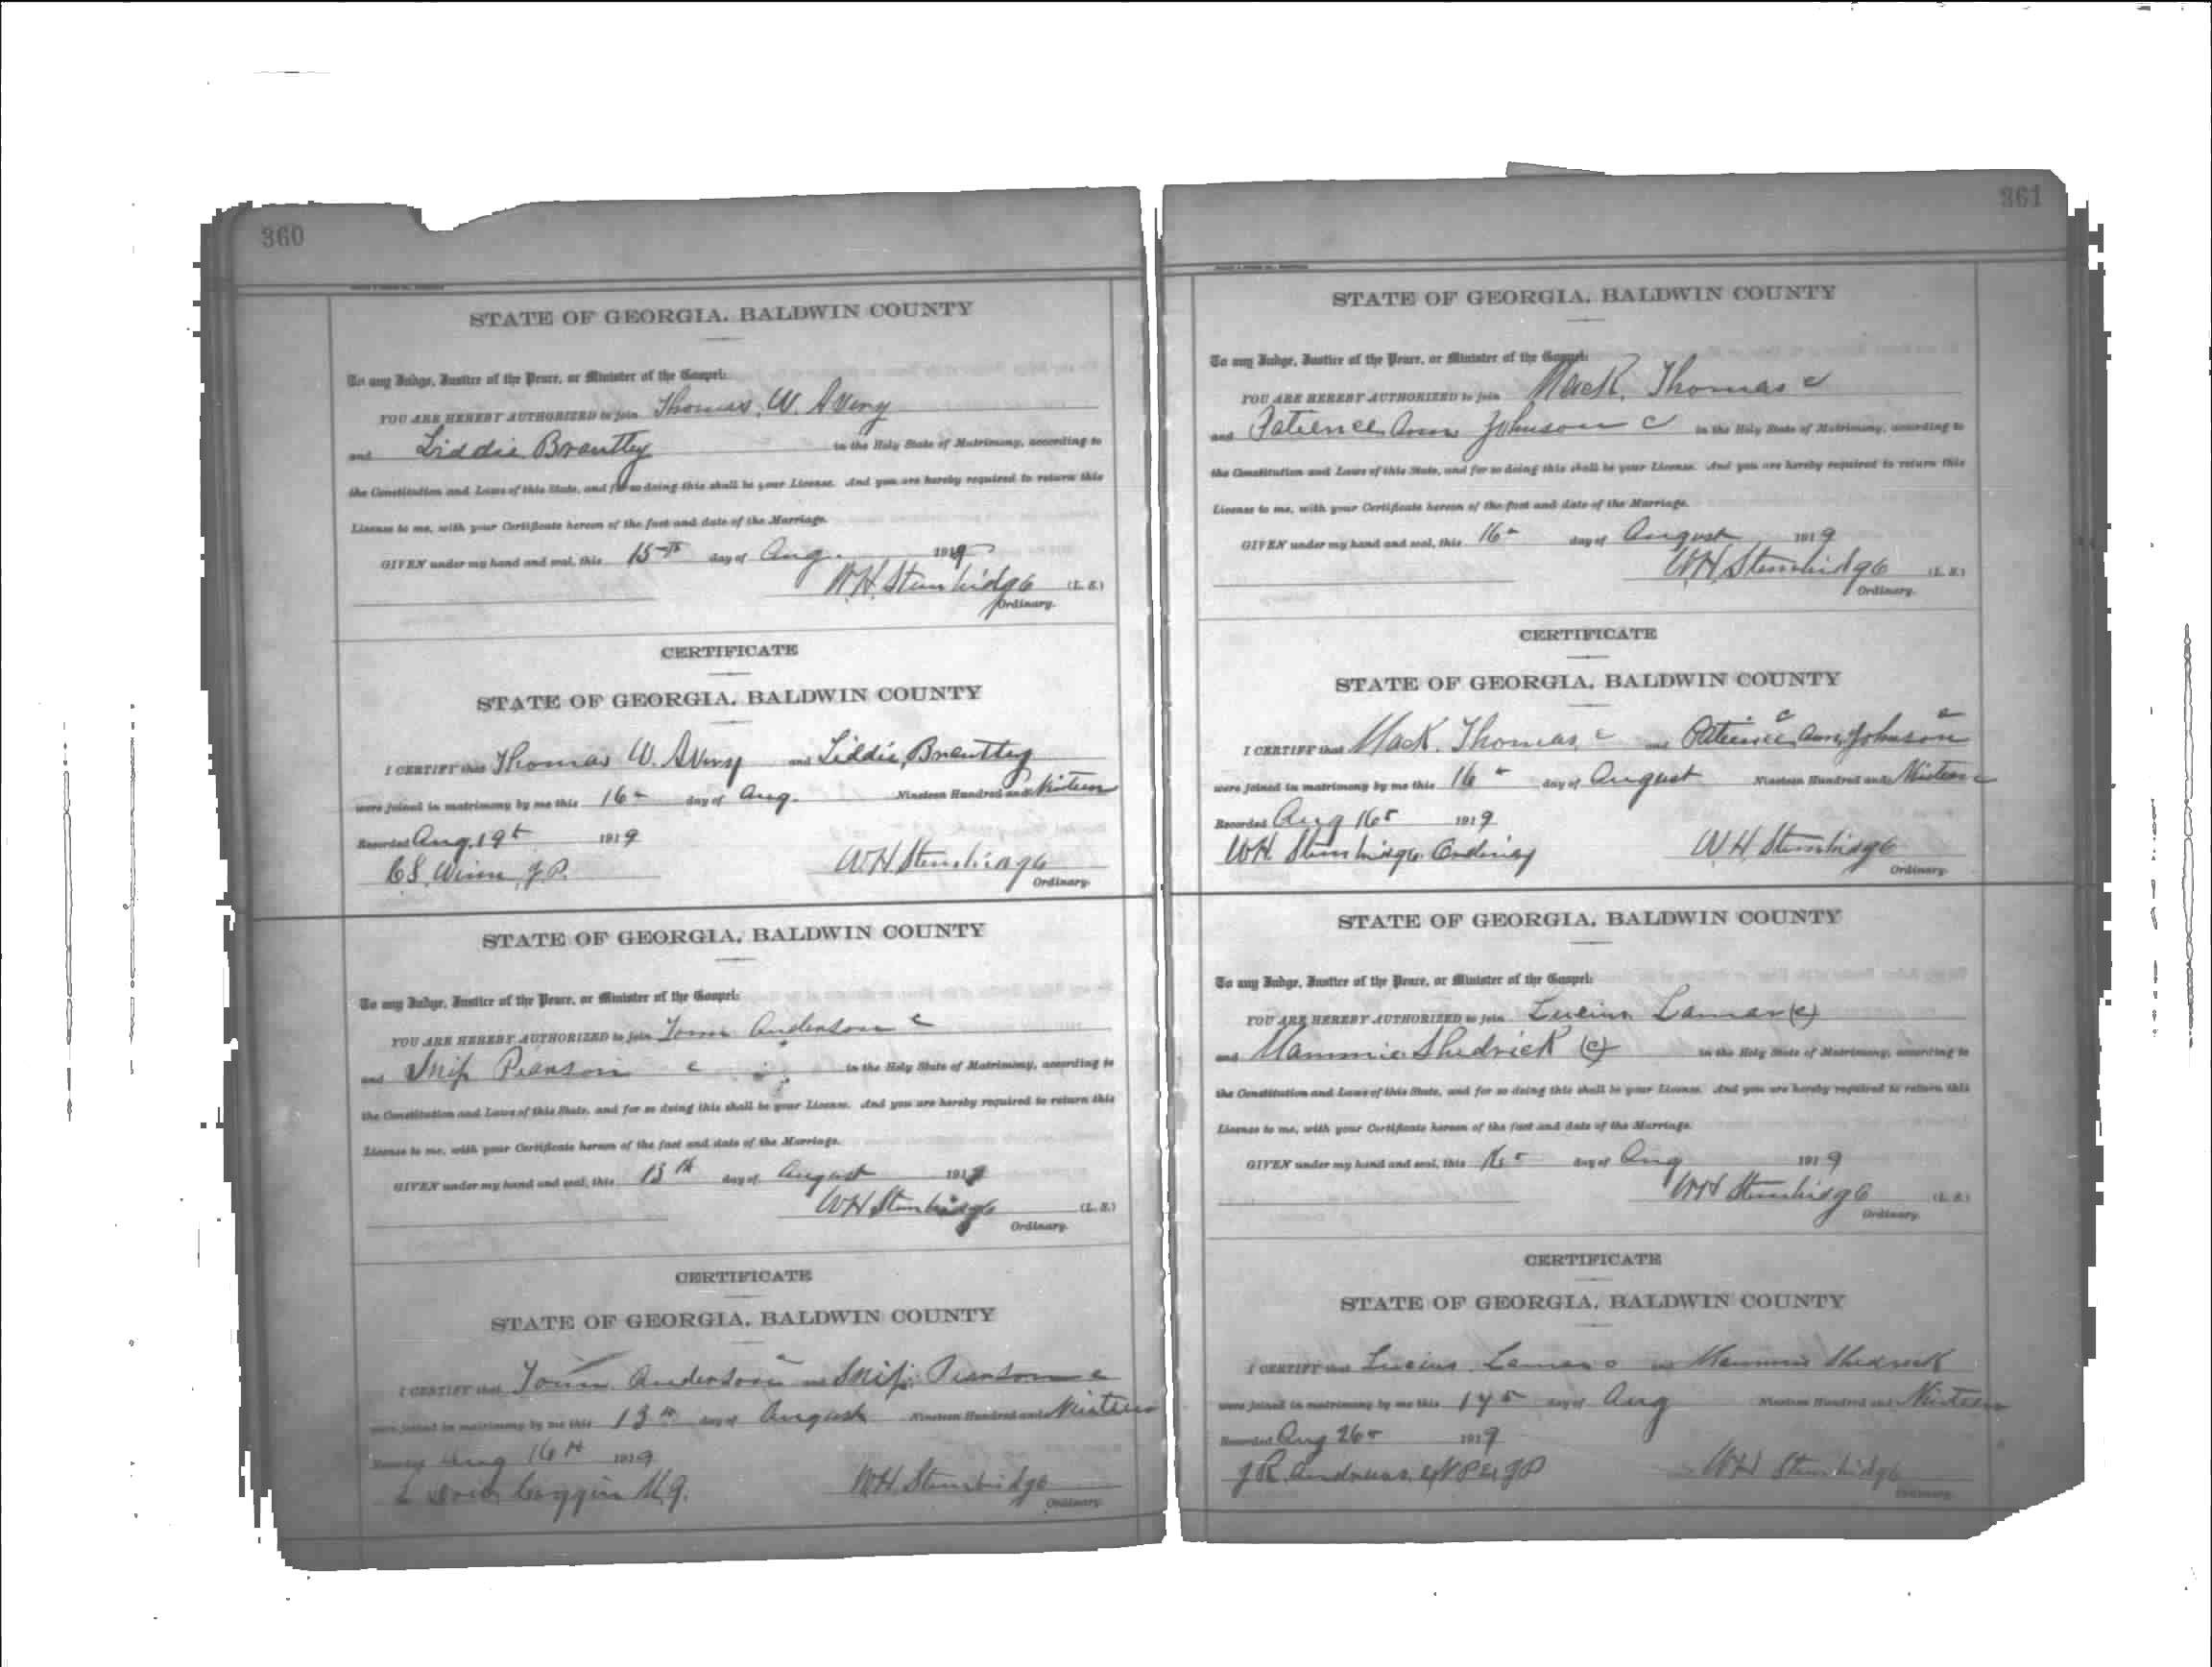 360
STATE OF GEORGIA, BALDWIN COUNTY
To any Judge, Justice of the Peace, or Minister of the Gospel:
YOU ARE HEREBY AUTHORIZED to join Thomas. W. Avery
and Liddie Brantley in the Holy State of Matrimony, according to
the Constitution and Laws of this State, and for so doing this shall be your License. And you are hereby required to return this
License to me, with your Certificate hereon of the fact and date of the Marriage.
GIVEN under my hand and seal, this 15th day of Aug. 1919
W.H. Stembridge (L. S.)
Ordinary.
CERTIFICATE
STATE OF GEORGIA, BALDWIN COUNTY
I CERTIFY that Thomas W. Avery and Liddie Brantley
were joined in matrimony by me this 16 day of Aug. Nineteen Hundred and
Recorded Aug. 19 1919
C.S. Winn J.P. W.H. Stembridge
Ordinary.
STATE OF GEORGIA, BALDWIN COUNTY
To any Judge, Justice of the Peace, or Minister of the Gospel:
YOU ARE HEREBY AUTHORIZED to join Tom Anderson c
and Pearson c in the Holy State of Matrimony, according to
the Constitution and Laws of this State, and for so doing this shall be your License. And you are hereby required to return this
License to me, with your Certificate hereon of the fact and date of the Marriage.
GIVEN under my hand and seal, this 13th day of August 1919
W.H. Stembridge (L. S.)
Ordinary.
CERTIFICATE
STATE OF GEORGIA, BALDWIN COUNTY
I CERTIFY that Tom Anderson c and Pearson c
were joined in matrimony by me this 13th day of August Nineteen Hundred and
Recorded Aug 16th 1919
M.G. W.H. Stembridge
Ordinary.
361
STATE OF GEORGIA, BALDWIN COUNTY
To any Judge, Justice of the Peace, or Minister of the Gospel:
YOU ARE HEREBY AUTHORIZED to join Mack. Thomas c
and Patience Ann Johnson c in the Holy State of Matrimony, according to
the Constitution and Laws of this State, and for so doing this shall be your License. And you are hereby required to return this
License to me, with your Certificate hereon of the fact and date of the Marriage.
GIVEN under my hand and seal, this 16 day of August 1919
W.H. Stembridge (L. S.)
Ordinary.
CERTIFICATE
STATE OF GEORGIA, BALDWIN COUNTY
I CERTIFY that Mack. Thomas c and Patience c Ann Johnson c
were joined in matrimony by me this 16 day of August Nineteen Hundred and
Recorded Aug 16 1919
W.H. Stembridge Ordinary W.H. Stembridge
Ordinary.
STATE OF GEORGIA, BALDWIN COUNTY
To any Judge, Justice of the Peace, or Minister of the Gospel:
YOU ARE HEREBY AUTHORIZED to join Lucius Lamar (c)
and Mammie Shedrick (c) in the Holy State of Matrimony, according to
the Constitution and Laws of this State, and for so doing this shall be your License. And you are hereby required to return this
License to me, with your Certificate hereon of the fact and date of the Marriage.
GIVEN under my hand and seal, this day of Aug 1919
W.H. Stembridge (L. S.)
Ordinary.
CERTIFICATE
STATE OF GEORGIA, BALDWIN COUNTY
I CERTIFY that Lucius Lamar c and Mammie Shedrick
were joined in matrimony by me this day of Aug Nineteen Hundred and
Recorded Aug 26 1919
J.R. Andrews, W.H. Stembridge
Ordinary.